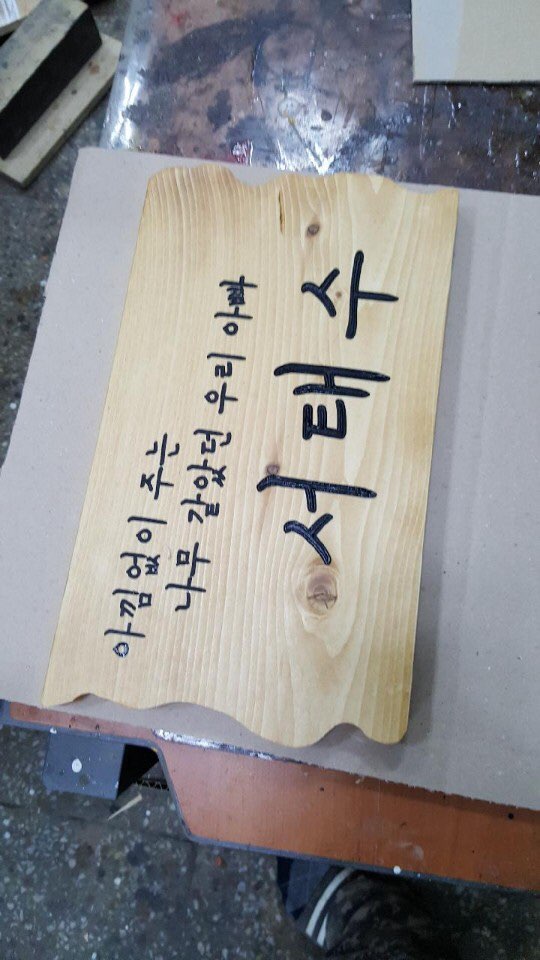 아낌없이 주는
나무 같았던 우리 아빠
서태수